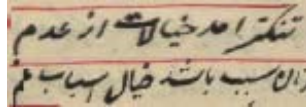 تنگتر آمد خیالات از عدم
زان سبب باشد خیال اسباب غم